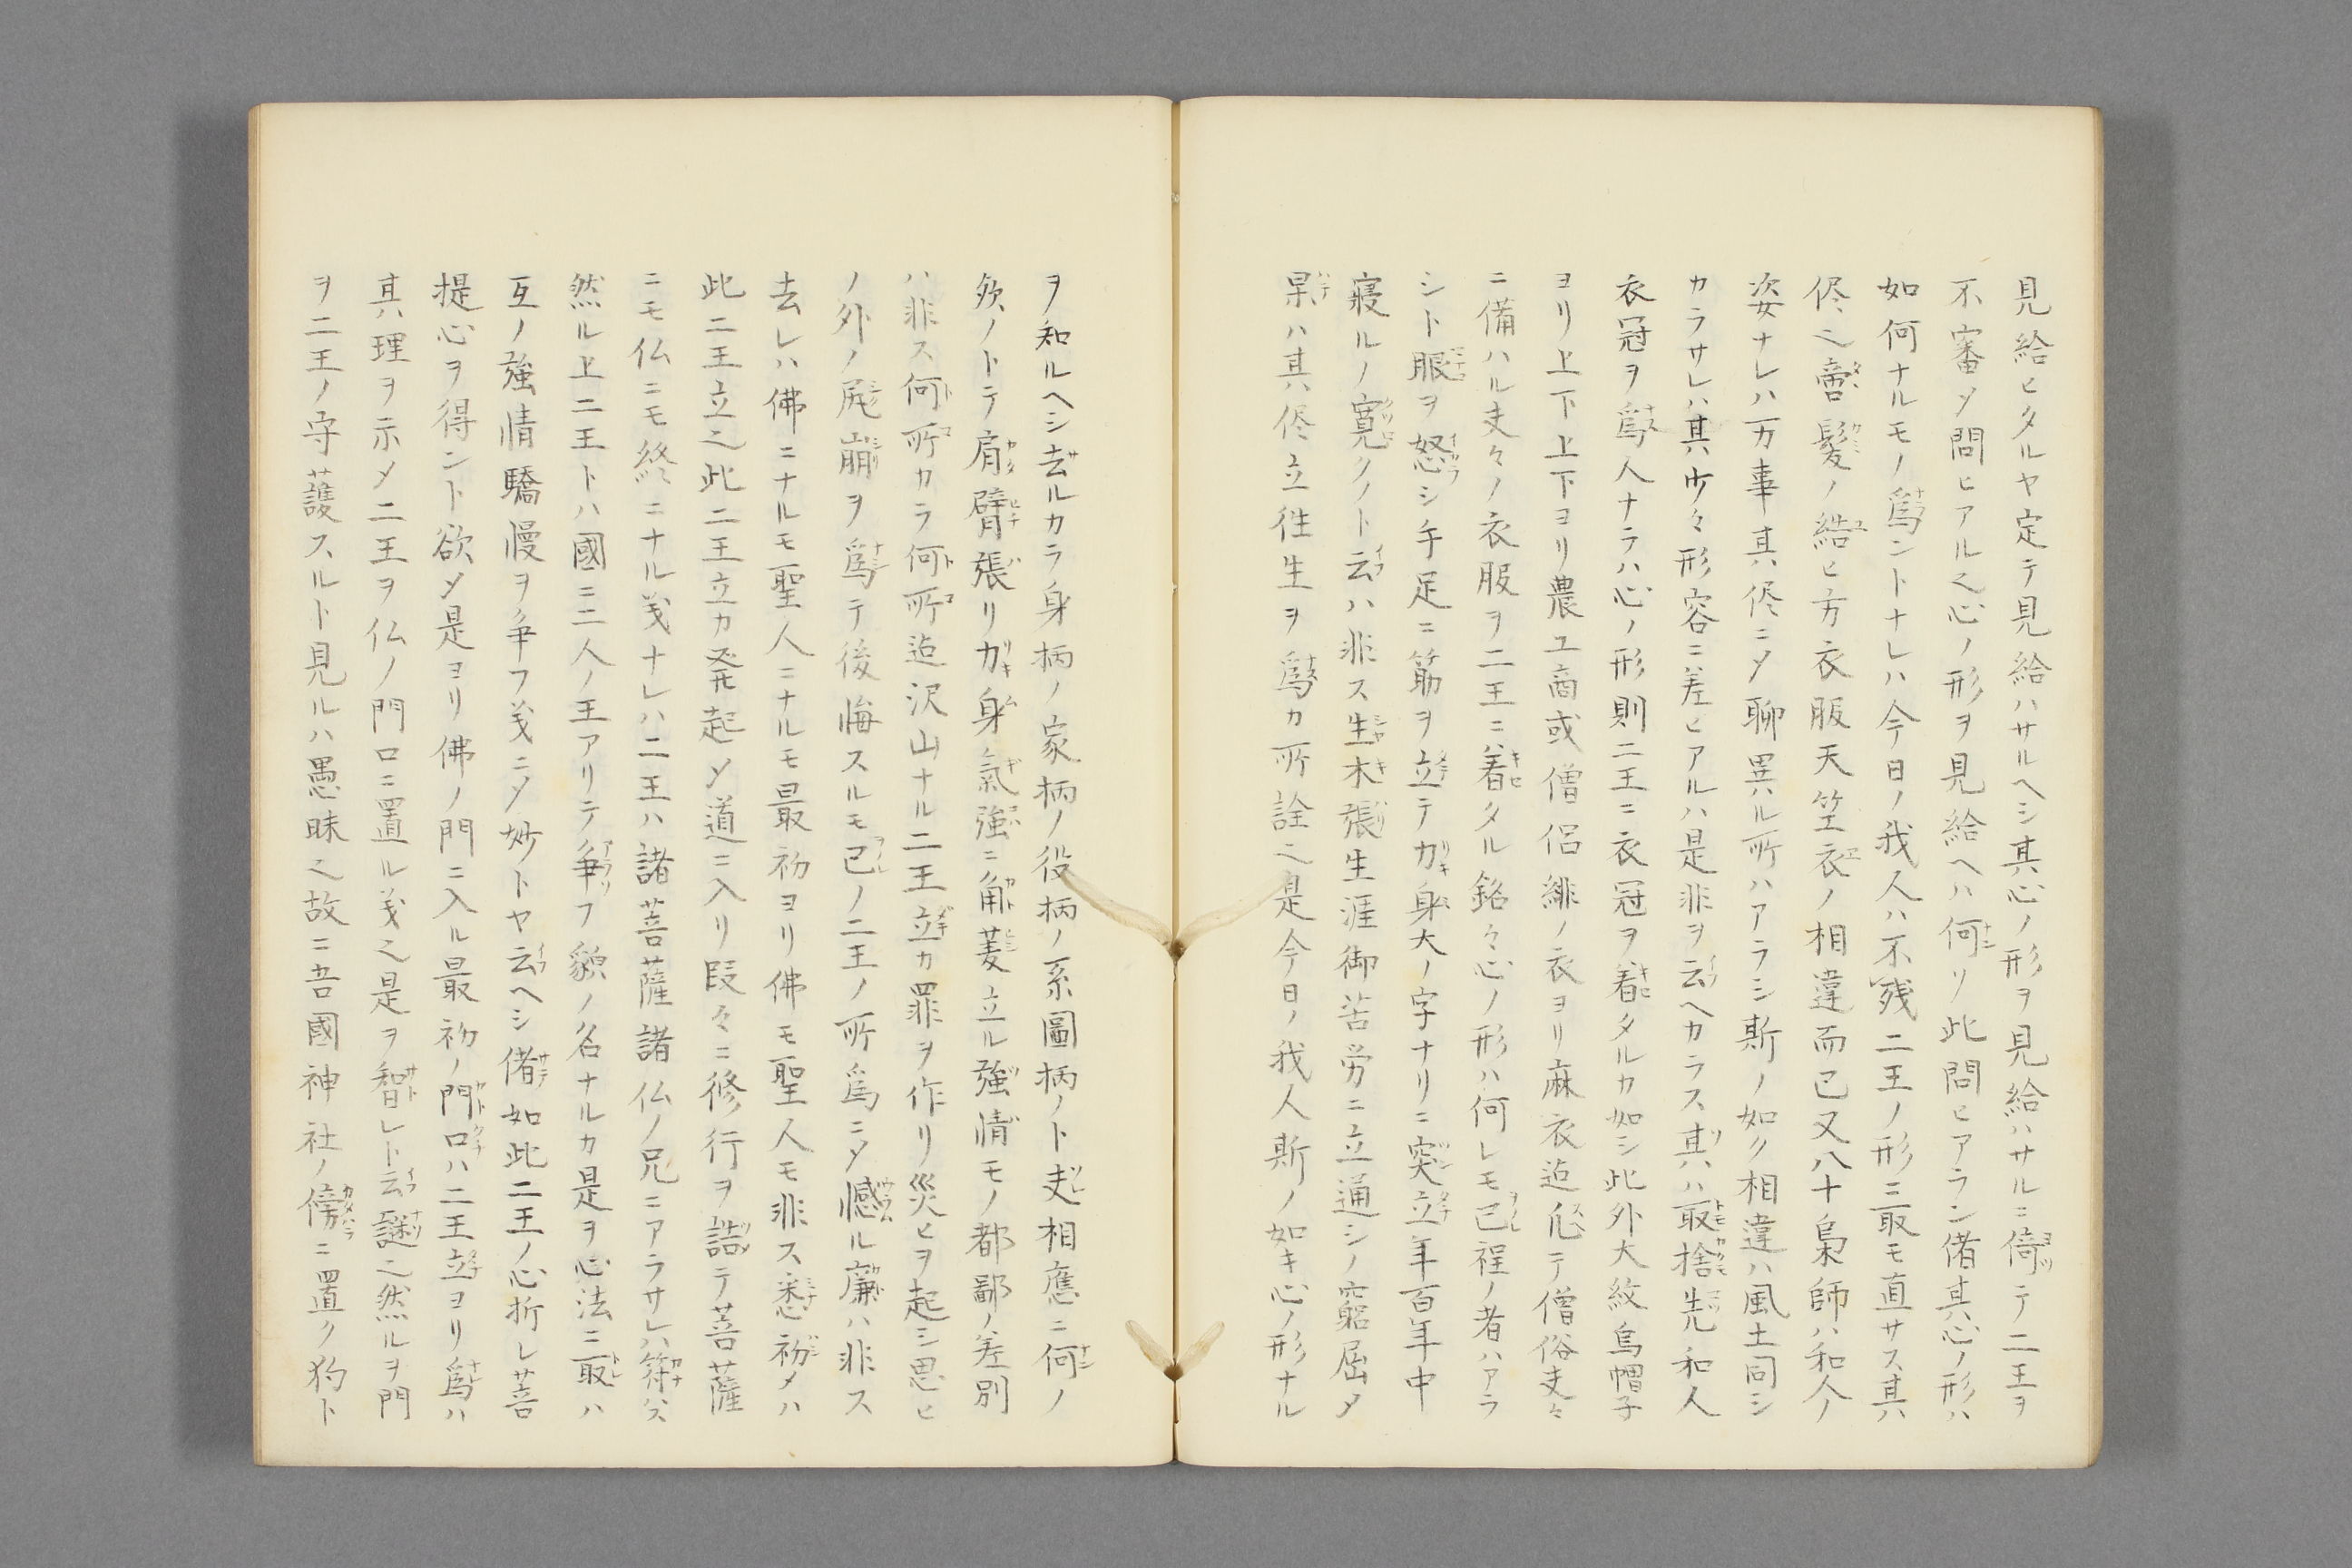 見給ヒタルヤ定テ見給ハサルヘシ其心ノ形ヲ見給ハサルニ倚テ二王ヲ
不審〆問ヒアル之心ノ形ヲ見給ヘハ何ソ此問ヒアラン偖其心ノ形ハ
如何ナルモノ爲ントナレハ今日ノ我人ハ不残二王ノ形ニ最モ直サス其
侭之啻髪ノ結ヒ方衣服天竺衣ノ相違而已又八十梟師ハ和人ノ
姿ナレハ万事其侭ニ〆聊異ル所ハアラシ斯ノ如ク相違ハ風土同シ
カラサレハ其少々形容ニ差ヒアルハ是非ヲ云ヘカラス其ハ取捨先和人
衣冠ヲ爲人ナラハ心ノ形則二王ニ衣冠ヲ着タルカ如シ此外大紋烏帽子
ヨリ上下上下ヨリ農工商或僧侶緋ノ衣ヨリ麻衣迠凡テ僧俗夫々
ニ備ハル夫々ノ衣服ヲ二王ニ着タル銘々心ノ形ハ何レモ己裎ノ者ハアラ
シト眼ヲ怒シ手足ニ筋ヲ立テ力身大ノ字ナリニ突立年百年中
寢ルノ寛クノト云ハ非ス生木張生涯御苦労ニ立通シノ窮屈〆
果ハ其侭立徃生ヲ爲カ所詮之是今日ノ我人斯ノ如キ心ノ形ナル
ヲ知ルヘシ去ルカラ身柄ノ家柄ノ役柄ノ系圖柄ノト夫相應ニ何ノ
欬ノトテ肩臂張リ力身氣強ニ角菱立ル強情モノ都鄙ノ差別
ハ非ス何所カラ何所迠沢山ナル二王立カ罪ヲ作リ災ヒヲ起シ思ヒ
ノ外ノ尻崩ヲ爲テ後悔スルモ己ノ二王ノ所爲ニ〆憾ル廉ハ非ス
去レハ佛ニナルモ聖人ニナルモ最初ヨリ佛モ聖人モ非ス悉初メハ
此二王立之此二王立カ発起〆道ニ入リ段々ニ修行ヲ詰テ菩薩
ニモ仏ニモ終ニナル義ナレハ二王ハ諸菩薩諸仏ノ兄ニアラサレハ符ハス
然ル上二王トハ國ニ二人ノ王アリテ争フ貌ノ名ナルカ是ヲ心法ニ取ハ
互ノ強情驕慢ヲ争フ義ニ〆妙トヤ云ヘシ偖如此二王ノ心折レ菩
提心ヲ得ント欲〆是ヨリ佛ノ門ニ入ル最初ノ門口ハ二王立ヨリ爲ハ
其理ヲ示〆二王ヲ仏ノ門口ニ置ル義之是ヲ智レト云謎之然ルヲ門
ヲ二王ノ守護スルト見ルハ愚昧之故ニ吾國神社ノ傍ニ置ク狗ト